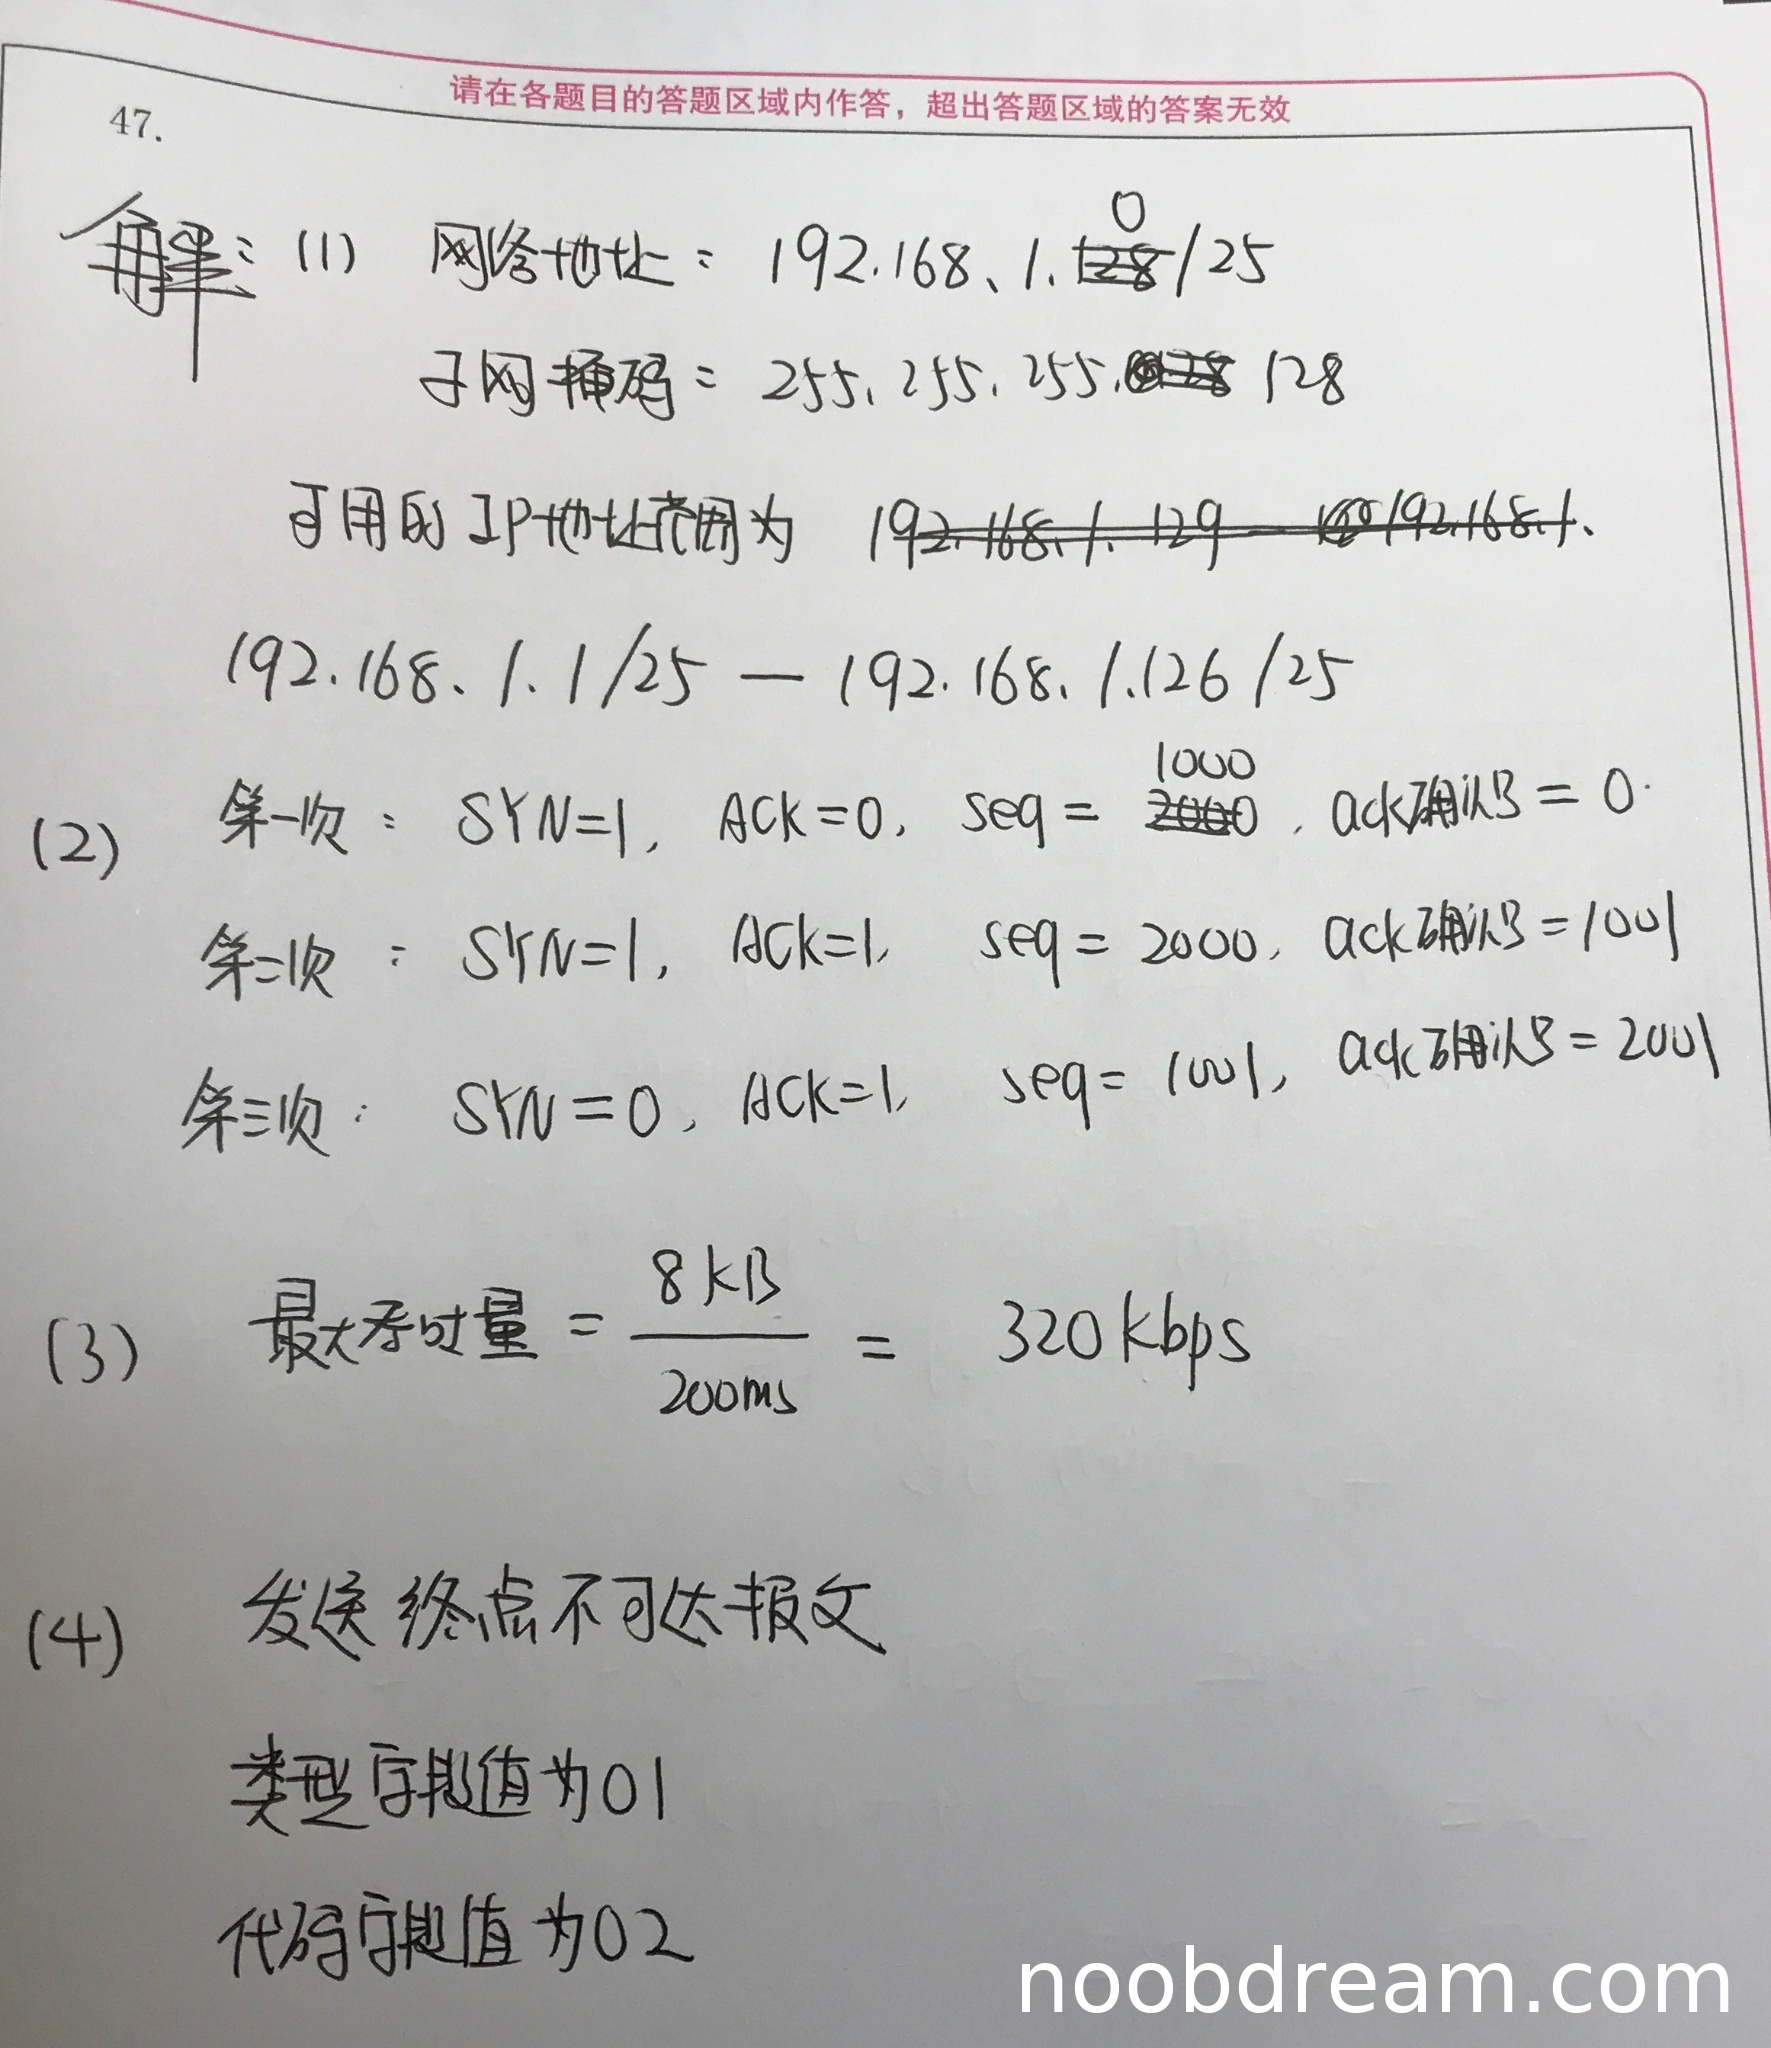 请在各题目的答题区域内作答，超出答题区域的答案无效
47.
解：(1) 网络地址：192.168.1.0/25
子网掩码：255.255.255.128
可用的IP地址范围为 192.168.1.129—192.168.1.
192.168.1.1/25 — 192.168.1.126/25
(2) 第一次：SYN=1, ACK=0, seq=1000, ack确认号=0.
第二次：SYN=1, ACK=1, seq=2000, ack确认号=1001
第三次：SYN=0, ACK=1, seq=1001, ack确认号=2001
(3) 最大吞吐量 = 8KB / 200ms = 320kbps
(4) 发送终点不可达报文
类型字段值为01
代码字段值为02
noobdream.com